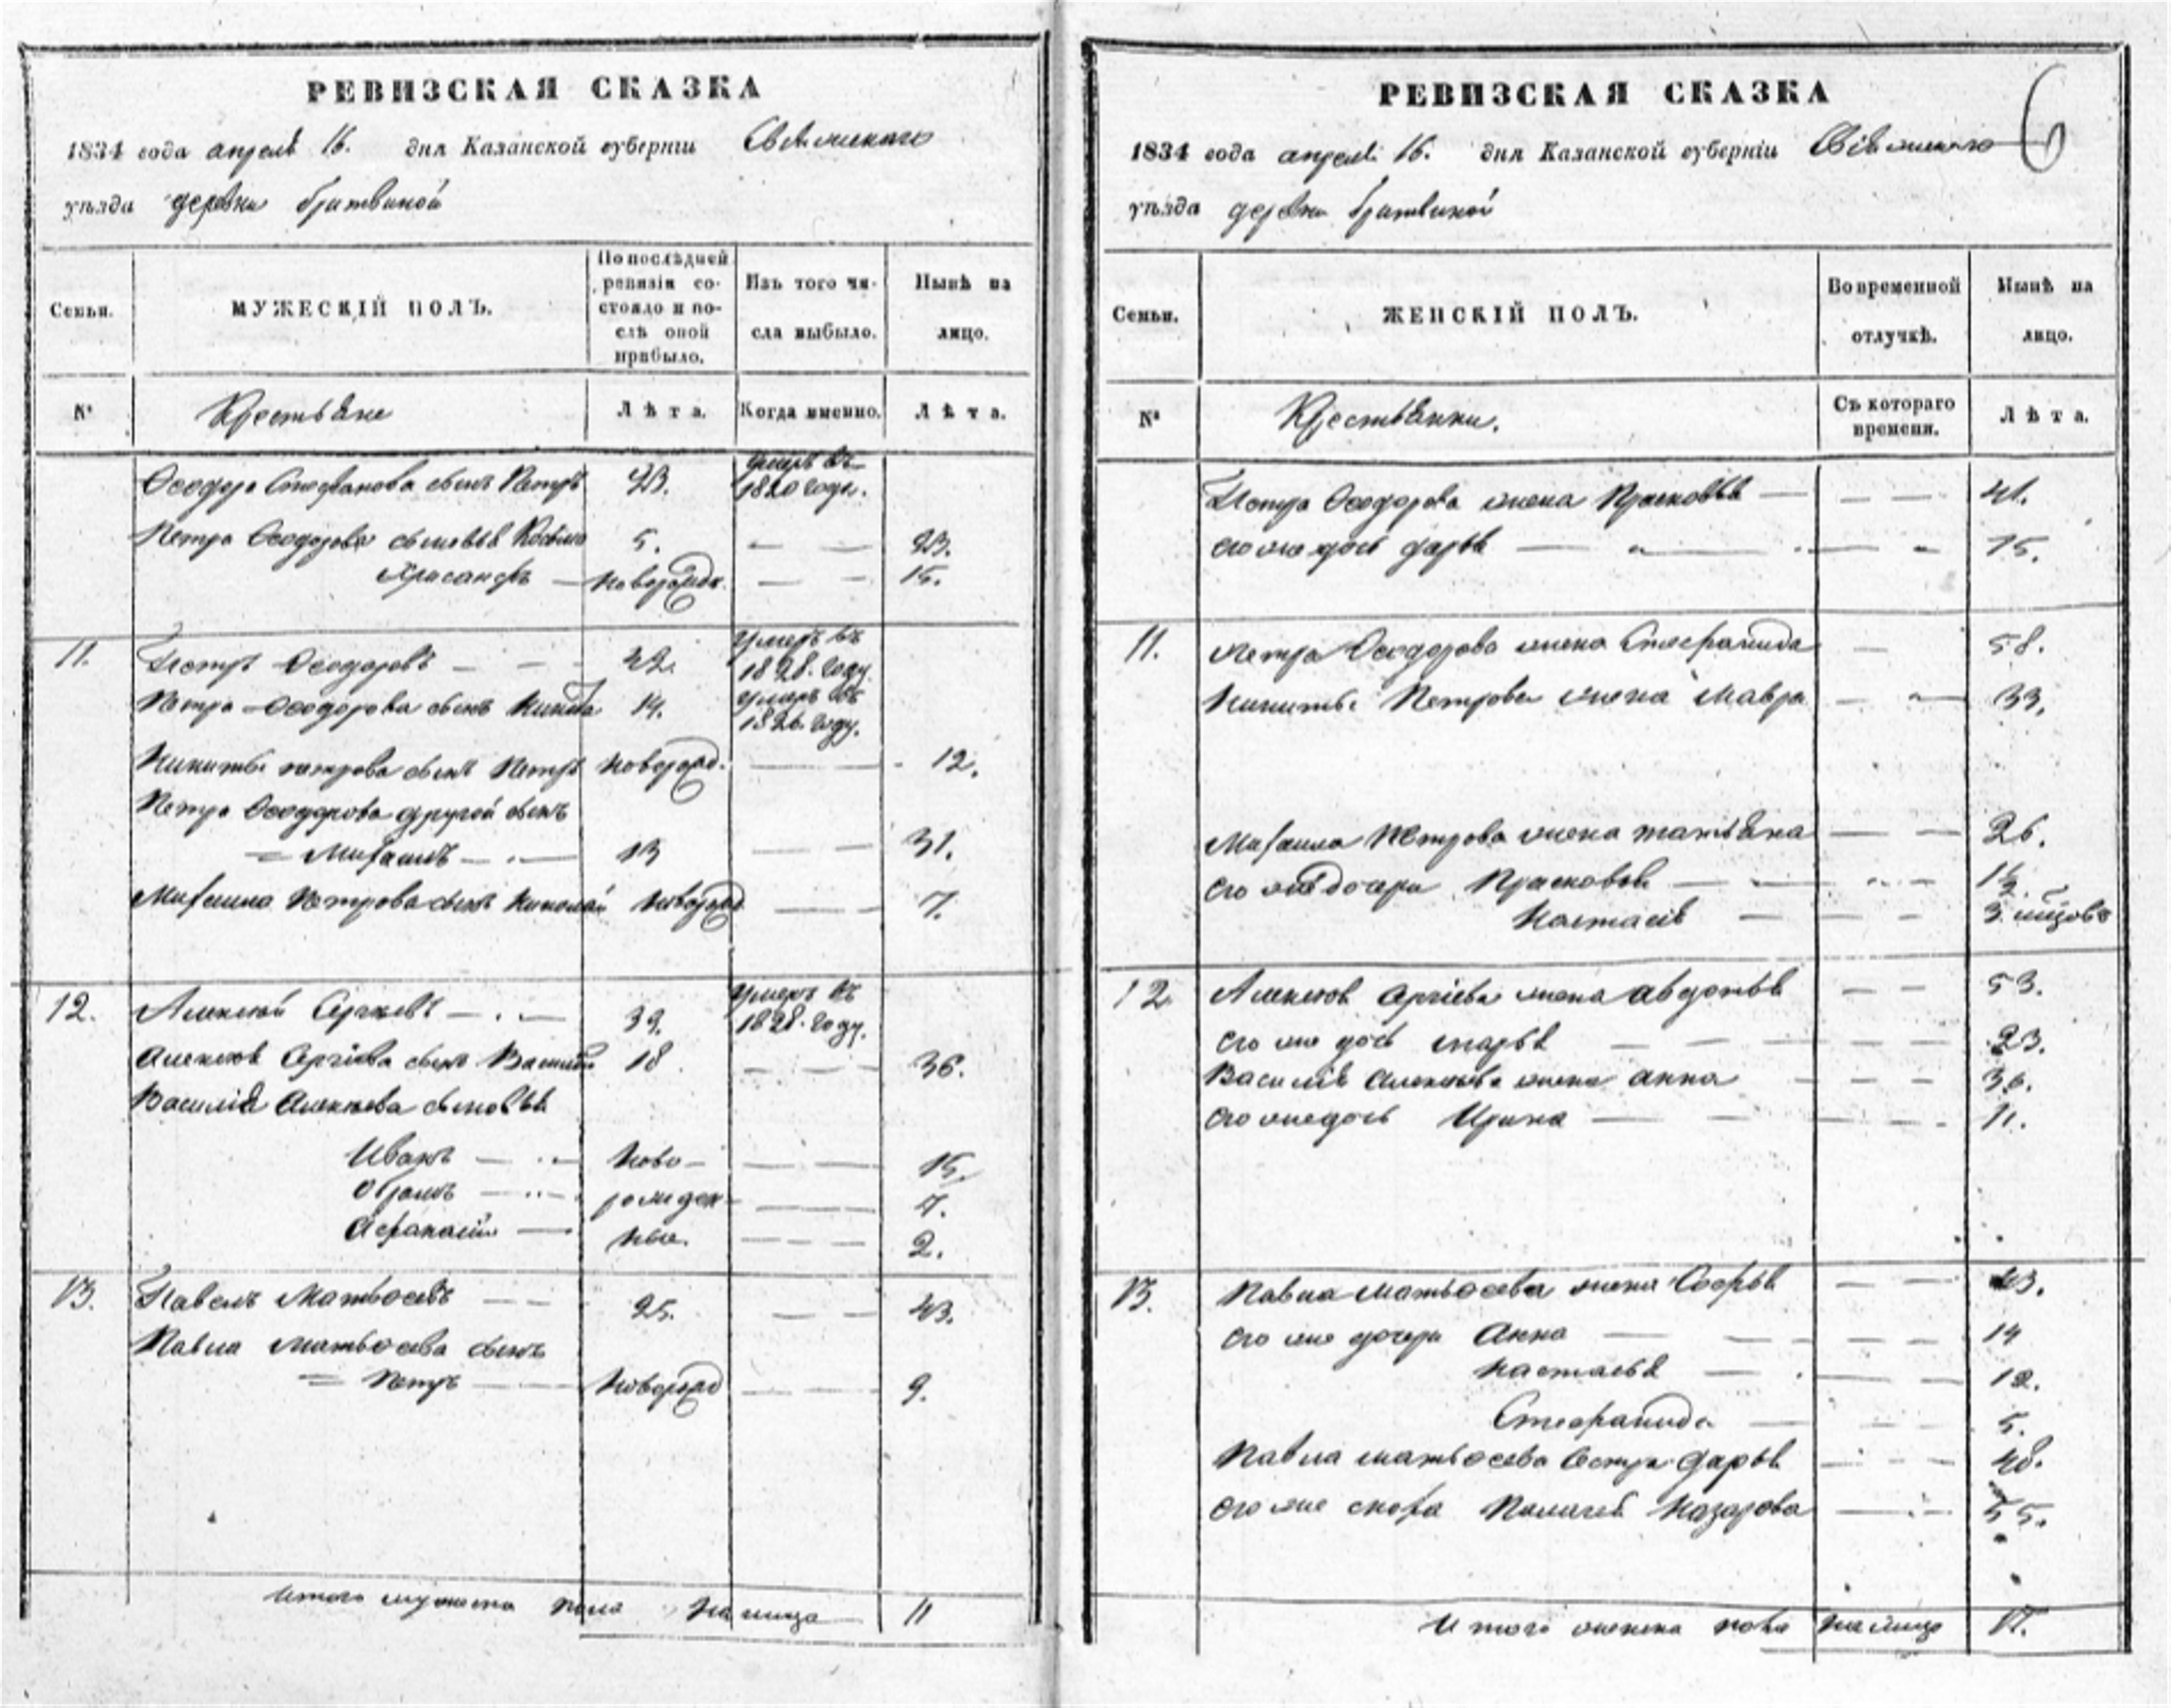 РЕВИЗСКАЯ СКАЗКА
1834 года апреля 16. дня Казанской губерніи Свіяжскаго
уѣзда деревни Бритвиной
Семьи.
МУЖЕСКІЙ ПОЛЪ.
По послѣдней
ревизіи со-
стояло и по-
слѣ оной
прибыло.
Изъ того чи-
сла выбыло.
Нынѣ на
лицо.
№
Крестьяне
Лѣта.
Когда именно.
Лѣта.
Ѳеодора Стефанова сынъ Петръ 23. умеръ въ
1820 годе.
Петра Ѳеодорова сыновья Косьма 5. — — 23.
Хрисанфъ — новорожд. — — 15.
11. Петръ Ѳеодоровъ — — 42. умеръ въ
1828. году.
Петра Ѳеодорова сынъ Никита 19. умеръ въ
1826. году.
Никиты петрова сынъ Петръ новорожд. — — 12.
Петра Ѳеодорова другой сынъ
= Михаилъ — 13 — — 31.
Михаила Петрова сынъ Николай новорожд — 7.
12. Алексей Сергѣевъ — . — 39. умеръ въ
1828. году.
Алексея Сергіева сынъ Василій 18 — — 36.
Василія Алексѣева сыновья
Иванъ — ново- — — 15.
— рожден- — — 7.
Афанасій — ные. — — 2.
13. Павелъ Матвѣевъ — — 25. — — 43.
Павла Матвѣева сынъ
= Петръ — новорожд — — 9.
Итого мужеска пола на лицо 11
РЕВИЗСКАЯ СКАЗКА
6
1834 года апреля 16. дня Казанской губерніи Свіяжскаго
уѣзда деревни Бритвиной
Семьи.
ЖЕНСКІЙ ПОЛЪ.
Во временной
отлучкѣ.
Нынѣ на
лицо.
№
Крестьянки.
Съ котораго
времени.
Лѣта.
Петра Ѳеодорова жена Прасковья — — — 41.
его же дочь дарья — — 15.
11. Петра Ѳеодорова жена Стефанида — 58.
Никиты Петрова жена Мавра — — 33.
Михаила Петрова жена татьяна — — 26.
его же дочери Прасковья — — 1½.
Настасія — — — 3. мѣсцовъ
12. Алексея Сргіева жена авдотья — — 53.
его же дочь марья — — — 23.
Василія Алексѣева жена анна — — — 36.
его же дочь Ирина — — — 11.
13. Павла матвѣева жена Софья — — 43.
его же дочери Анна — — — 14
настасья — — — 12.
Стефанида — — — 5.
Павла матвѣева Сестра дарья — — 48.
его же сноха Пелагея Назарова — — 55.
Итого женска пола на лицо 17.